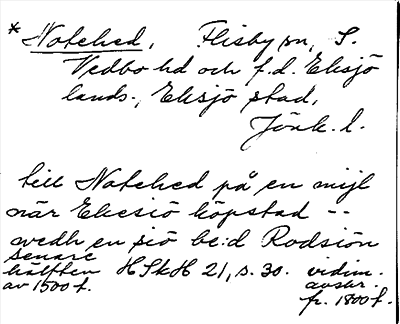 * Notehed, Flisby sn, S.
Vedbo hd och f.d. Eksjö
lands., Eksjö stad,
Jönk. l.
till Notehed på en mijl
när Ekesiö köpstad --
wedh en siö be:d Rodsiön
senare
hälften HSkH 21, s. 30. vidim.
av 1500t. avskr.
fr. 1800t.